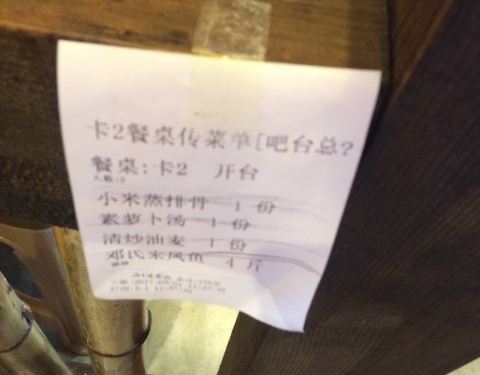 卡2餐桌传菜单[吧台总?
餐桌:卡2 开台
人数:2
小米蒸排骨 1 份
素萝卜汤 1 份
清炒油麦 1 份
邓氏来凤鱼 4 斤